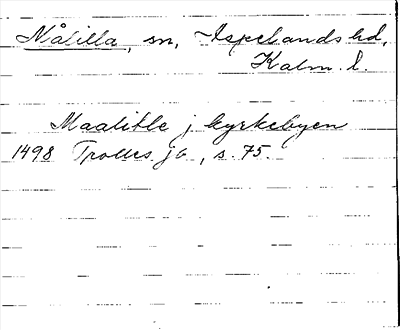 Målilla, sn, Aspelands hd,
Kalm. l.
Maalitle j kyrkebyen
1498 Trolles jb, s. 75.